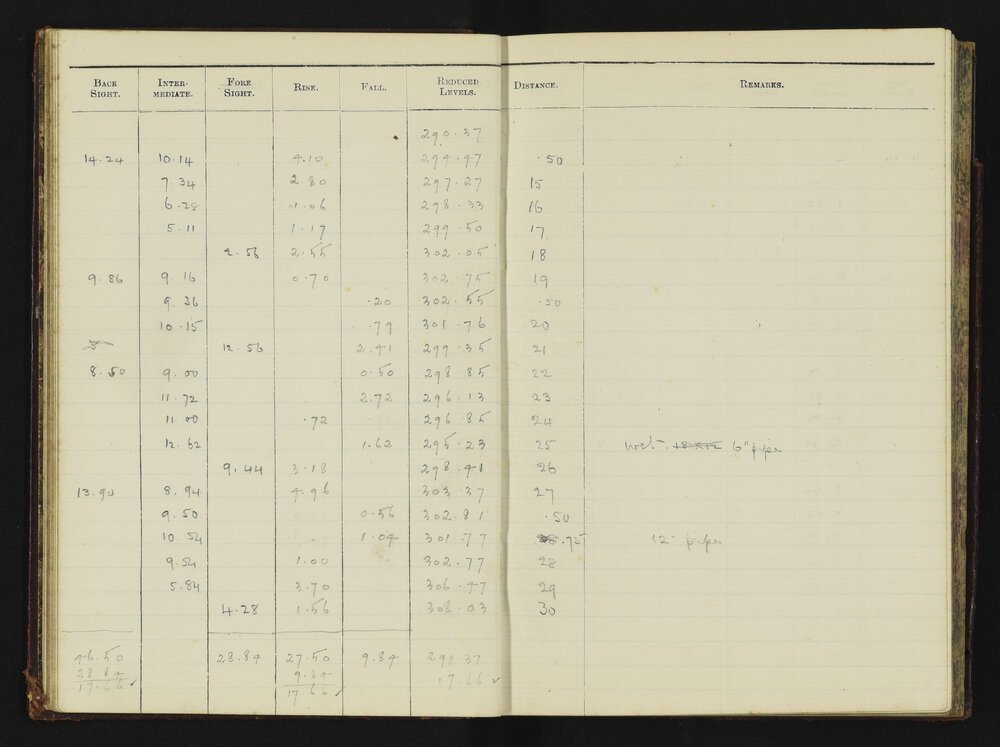 BACK SIGHT. INTER-MEDIATE. FORE SIGHT. RISE. FALL. REDUCED LEVELS. DISTANCE. REMARKS.
290.37
14.24 10.14 4.10 294.47 .50
7.34 2.80 297.27 15
6.28 1.06 298.33 16
5.11 1.17 299.50 17
2.56 2.55 302.05 18
9.86 9.16 0.70 302.75 19
9.36 .20 302.55 .50
10.15 .79 301.76 20
12.56 2.41 299.35 21
8.50 9.00 0.50 298.85 22
11.72 2.72 296.13 23
11.00 .72 296.85 24
12.62 1.62 295.23 25 wet 6" pipe
9.44 3.18 298.41 26
13.90 8.94 4.96 303.37 27
9.50 0.56 302.81 .50
10.54 1.04 301.77 .75 12" pipe
9.54 1.00 302.77 28
5.84 3.70 306.47 29
4.28 1.56 308.03 30
46.50 28.84 27.50 9.84 290.37
28.84 9.84 17.66 ✓
17.66 ✓ 17.66 ✓